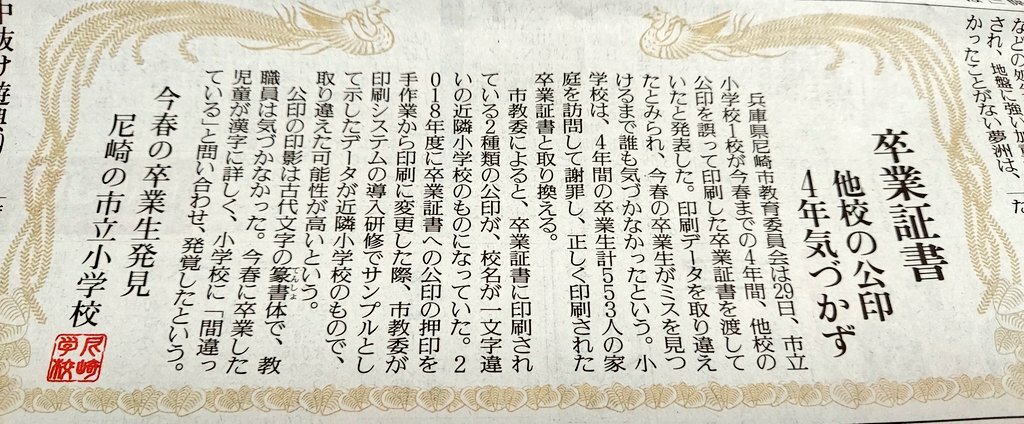 卒業証書
他校の公印
4年気づかず
兵庫県尼崎市教育委員会は29日、市立
小学校1校が今春までの4年間、他校の
公印を誤って印刷した卒業証書を渡して
いたと発表した。印刷データを取り違え
たとみられ、今春の卒業生がミスを見つ
けるまで誰も気づかなかったという。小
学校は、4年間の卒業生計553人の家
庭を訪問して謝罪し、正しく印刷された
卒業証書と取り換える。
市教委によると、卒業証書に印刷され
ている2種類の公印が、校名が一文字違
いの近隣小学校のものになっていた。2
018年度に卒業証書への公印の押印を
手作業から印刷に変更した際、市教委が
印刷システムの導入研修でサンプルとし
て示したデータが近隣小学校のもので、
取り違えた可能性が高いという。
公印の印影は古代文字の篆書体で、教
てんしょ
職員は気づかなかった。今春に卒業した
児童が漢字に詳しく、小学校に「間違っ
ている」と問い合わせ、発覚したという。
今春の卒業生発見
尼崎の市立小学校
尼崎
学校
などの処
され、地盤に強い加
かったことがない夢洲は、